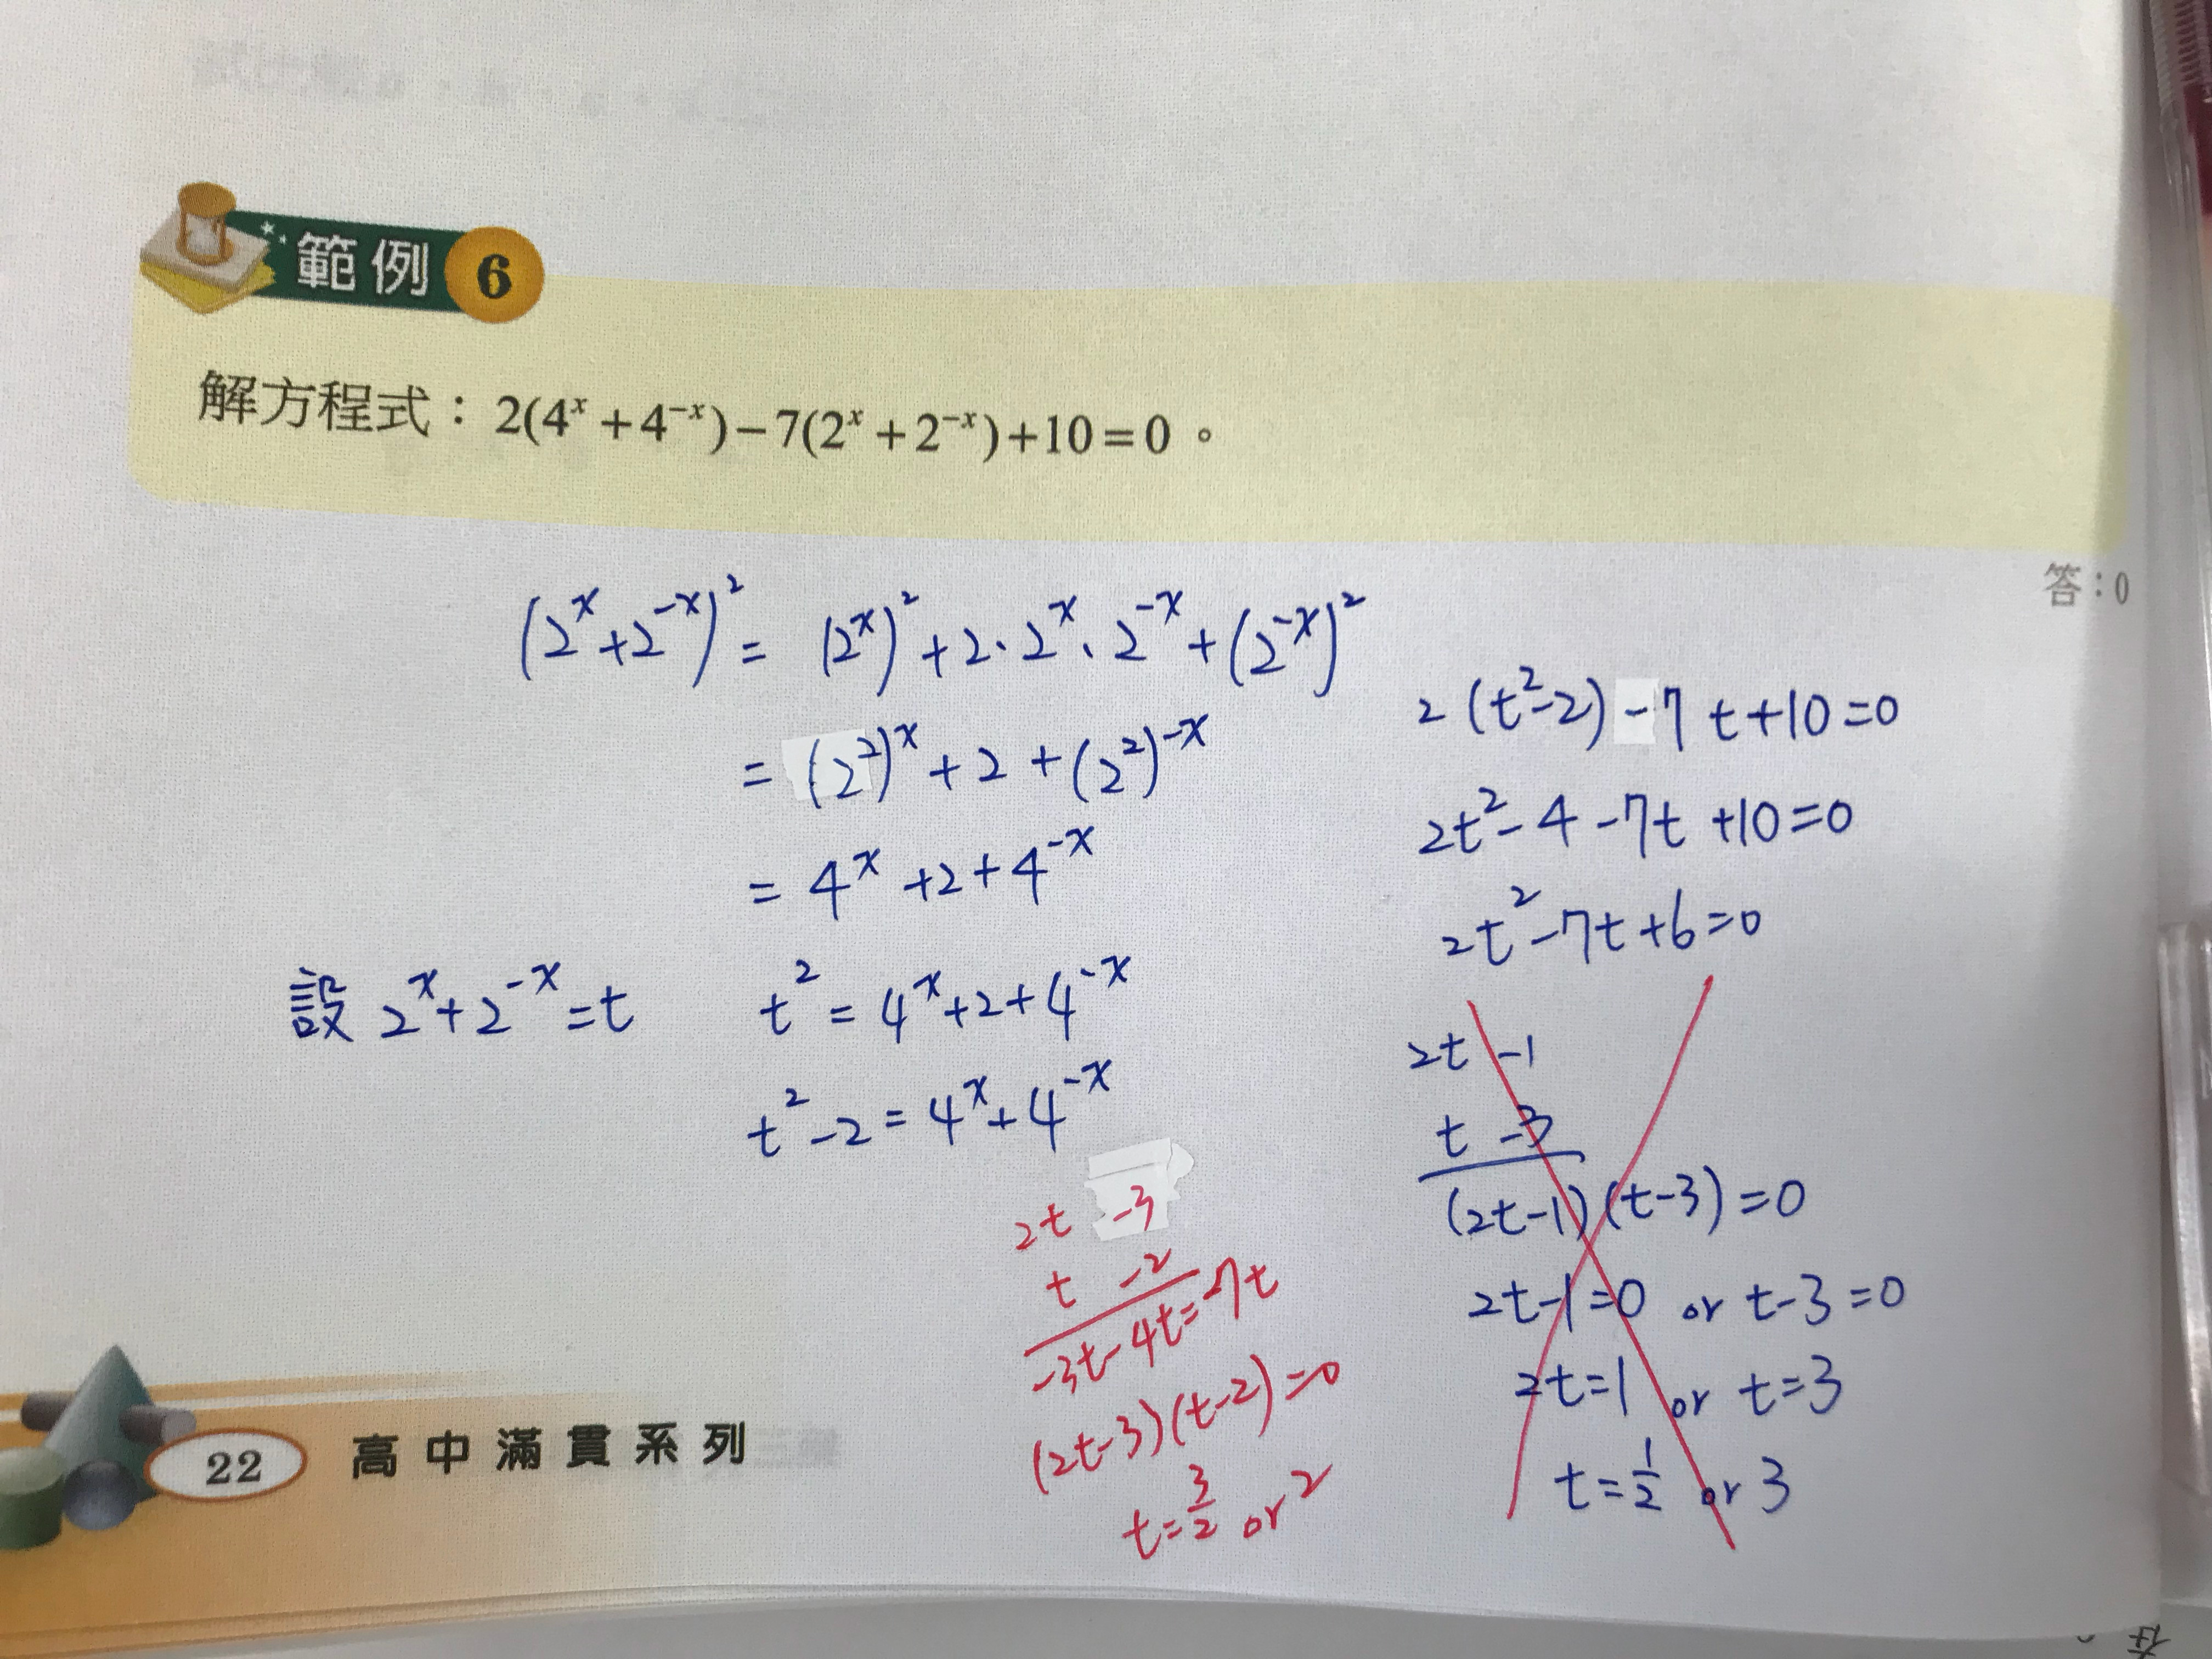 範例 6
解方程式：2(4ˣ+4⁻ˣ)−7(2ˣ+2⁻ˣ)+10=0。
答：0
(2ˣ+2⁻ˣ)² = (2ˣ)²+2·2ˣ·2⁻ˣ+(2⁻ˣ)²
= (2²)ˣ+2+(2²)⁻ˣ
= 4ˣ+2+4⁻ˣ
設 2ˣ+2⁻ˣ=t
t² = 4ˣ+2+4⁻ˣ
t²-2 = 4ˣ+4⁻ˣ
2(t²-2)-7t+10=0
2t²-4-7t+10=0
2t²-7t+6=0
2t -1
t -3
(2t-1)(t-3)=0
2t-1=0 or t-3=0
2t=1 or t=3
t=1/2 or 3
2t -3
t -2
-3t-4t=-7t
(2t-3)(t-2)=0
t=3/2 or 2
22 高中滿貫系列